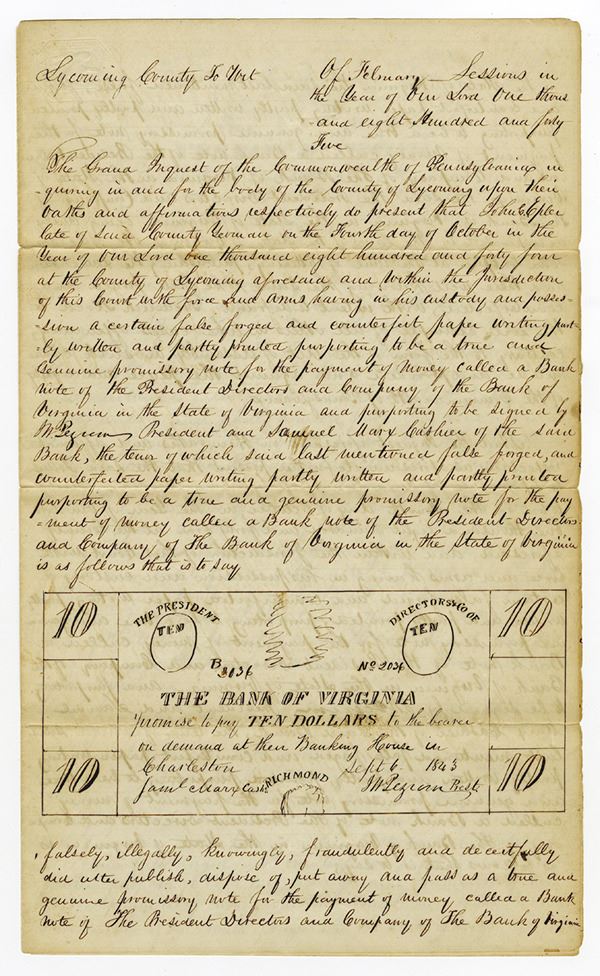 Lycoming County To Wit
Of February Sessions in
the Year of Our Lord One thous
-and eight Hundred and forty
Five
The Grand Inquest of the Commonwealth of Pennsylvania in
-quiring in and for the body of the County of Lycoming upon their
oaths and affirmations respectively do present that John C Epler
late of said County Yeoman on the Fourth day of October in the
Year of Our Lord one thousand eight hundred and forty four
at the County of Lycoming aforesaid and within the Jurisdiction
of this Court with force and arms having in his custody and posses-
-sion a certain false forged and counterfeit paper writing part-
-ly written and partly printed purporting to be a true and
Genuine promissory note for the payment of Money called a Bank
note of the President Directors and Company of the Bank of
Virginia in the State of Virginia and purporting to be signed by
President and Samuel Marx Cashier of the said
Bank, the tenor of which said last mentioned false forged, and
counterfeited paper writing partly written and partly printed
purporting to be a true and genuine promissory note for the pay
-ment of money called a Bank note of the President Directors
and Company of The Bank of Virginia in the State of Virginia
is as follows that is to say
10 THE PRESIDENT DIRECTORS & CO OF 10
TEN TEN
B 3036 No 2036
THE BANK OF VIRGINIA
promise to pay TEN DOLLARS to the bearer
on demand at their Banking House in
Charleston Sept 6 1843
10 Saml Marx Cashr RICHMOND Prest 10
falsely, illegally, knowingly, fraudulently and deceitfully
did utter publish, dispose of, put away and pass as a true and
genuine promissory note for the payment of money called a Bank
note of The President Directors and Company of The Bank of Virginia